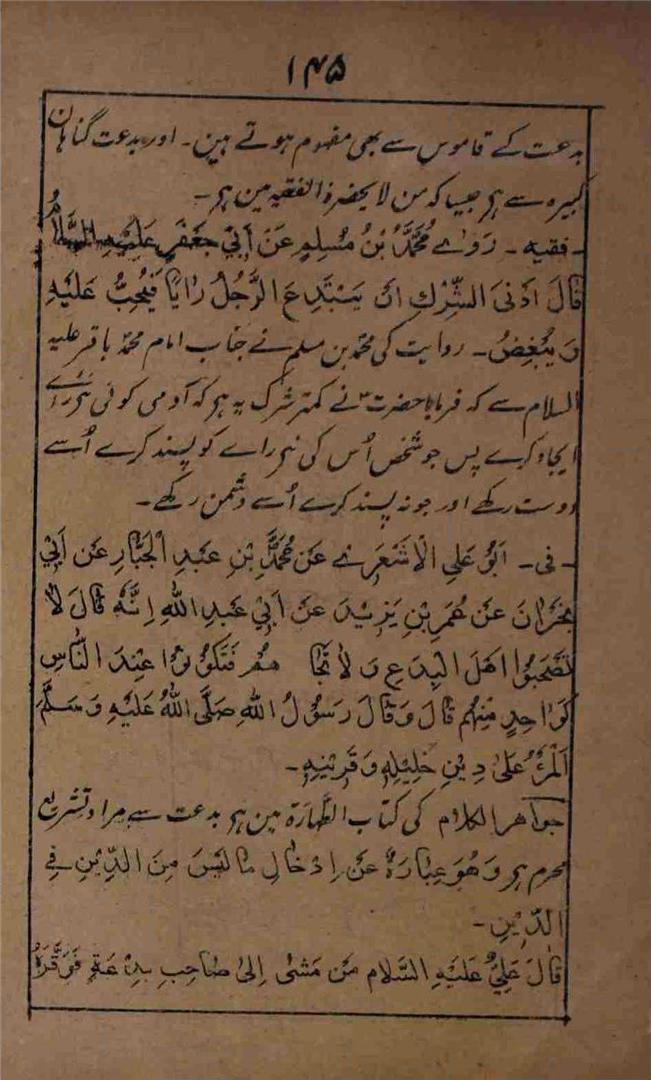 ۱۴۵
بدعت کے قاموس سے بھی مفہوم ہوتے ہین۔ اور بدعت گناہان
کبیرہ سے ہی جیسا کہ من لا یحضرۃ الفقیہ مین ہی۔
۔ فقیہ۔ رَوٰے مُحَمَّدُ بْنُ مُسْلِمٍ عَنْ اَبِيْ جَعْفَرٍ عَلَيْهِ السَّلَامُ
قَالَ اَدْنَی الشِّرْكِ اَنْ يَبْتَدِعَ الرَّجُلُ رَايًا فَيُحِبُّ عَلَيْهِ
وَيُبْغِضُ۔ روایت کی محمد بن مسلم نے جناب امام محمد باقر علیہ
السلام سے کہ فرمایا حضرت نے کمتر شرک یہ ہی کہ آدمی کوئی نئی راے
ایجاد کرے پس جو شخص اُس کی نئی راے کو پسند کرے اُسے
دوست رکھے اور جو نہ پسند کرے اُسے دشمن رکھے۔
۔ فی۔ اَبُوْ عَلِيِ الْاَشْعَرِے عَنْ مُحَمَّدِ بْنِ عَبْدِ الْجَبَّارِ عَنْ اَبِيْ
نَجْرَانَ عَنْ عُمَرِ بْنِ يَزِيْدَ عَنْ اَبِيْ عَبْدِ اللهِ اِنَّهٗ قَالَ لَا
تَصْحَبُوْا اَهْلَ الْبِدَعِ وَلَا تُجَا هُمْ فَتَكُوْنُوْا عِنْدَ النَّاسِ
كَوَاحِدٍ مِنْهُمْ قَالَ وَقَالَ رَسُوْلُ اللهِ صَلَّی اللهُ عَلَيْهِ وَسَلَّمَ
اَلْمَرْءُ عَلٰی دِيْنِ خَلِيْلِهٖ وَقَرِيْنِهٖ۔
جواهر الکلام کی کتاب الطہارۃ مین ہی بدعت سے مراد تشریع
محرم ہی وَهُوَ عِبَارَةٌ عَنْ اِدْخَالِ مَا لَيْسَ مِنَ الدِّيْنِ فِي
الدِّيْنِ۔
قَالَ عَلِيٌّ عَلَيْهِ السَّلَام مَنْ مَشٰی اِلٰی صَاحِبِ بِدْعَةٍ فَوَقَّرَهٗ